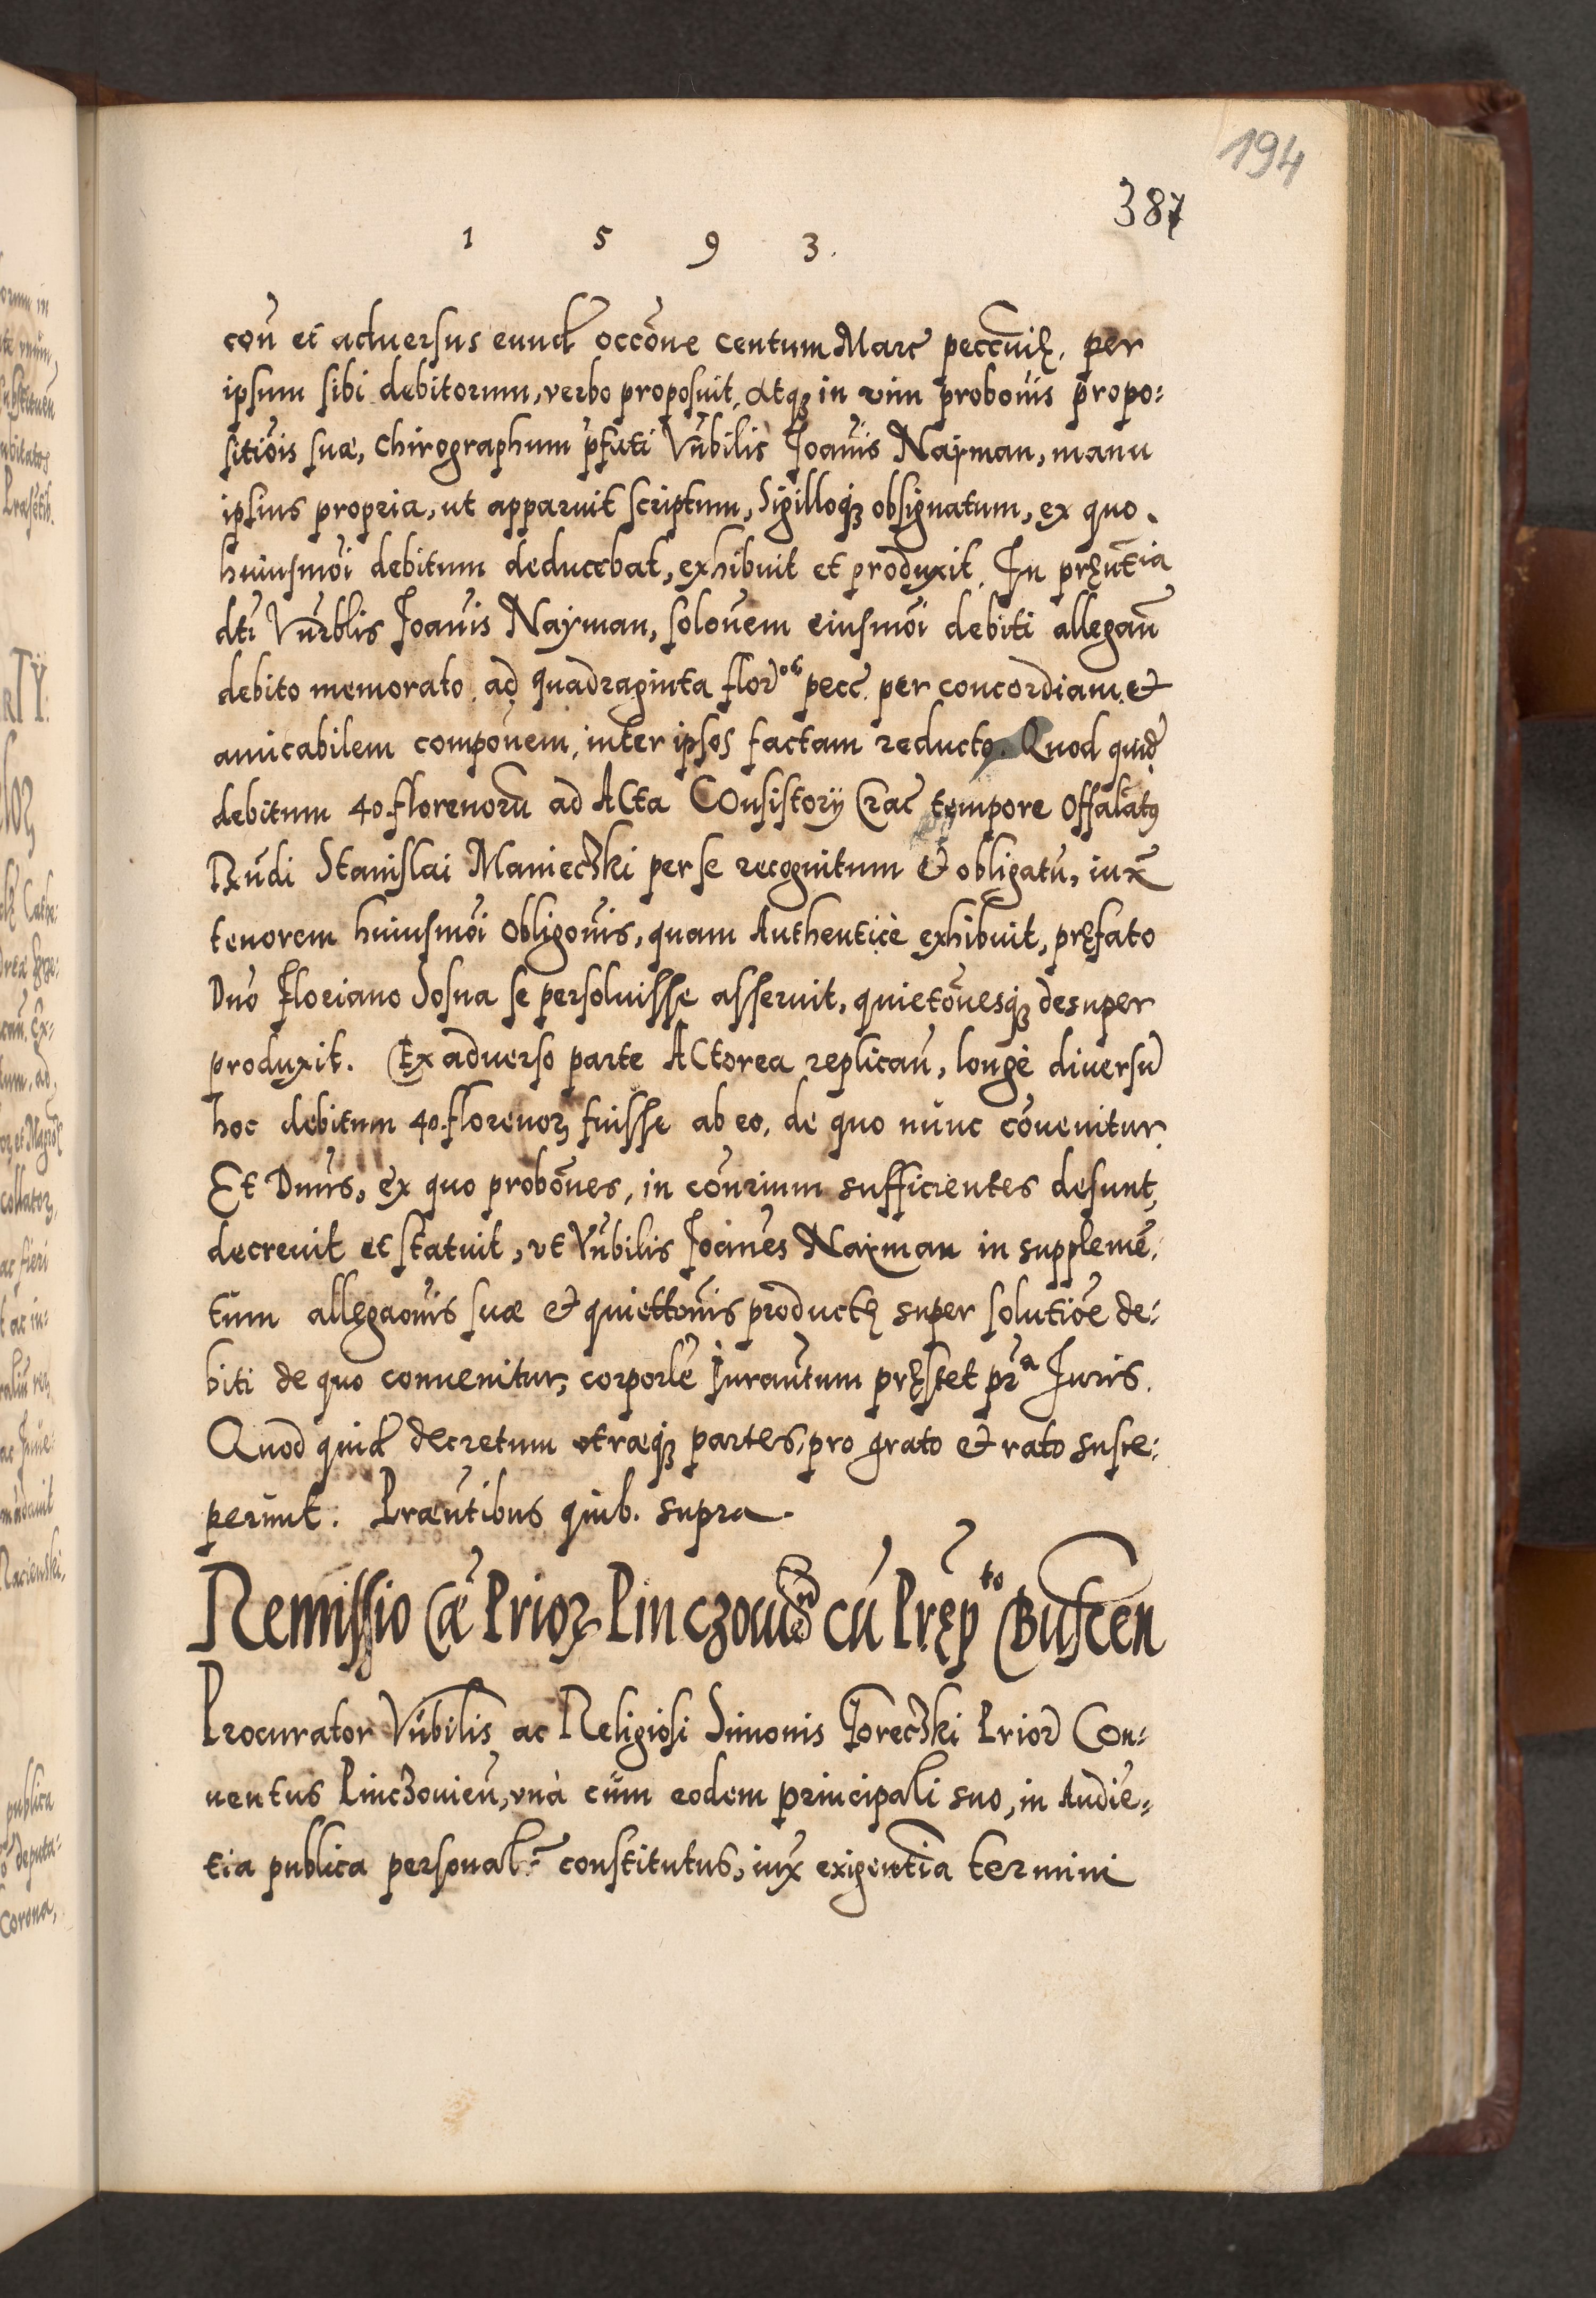 194
387
1 5 9 3.
coñ et aduersus eund occõne centum Marc peccuię. per
ipsum sibi debitorum, verbo proposuit, Atqȝ in vim probonis propo:
sitiõis suæ, Chirographum p̃fati Vñbilis Joañis Nayman, manu
ipsius propria, ut apparuit scriptum, Sigilloqȝ obsignatum, ex quo
huiusmõi debitum deducebat, exhibuit et produxit. In pręñtia
dti Vñrblis Joañis Nayman, soloñem eiusmõi debiti allegañ
debito memorato ad quadraginta flor^os pecc per concordiam et
amicabilem compoñem, inter ipsos factam reducto. Quod quid
debitum 40. florenorũ ad Acta Consistory Crac tempore Offalatꝯ
Rũdi Stanislai Manieczki per se recognitum et obligatũ, iux̃
tenorem huiusmõi obligoñis, quam Authenticè exhibuit, pręfato
Dño Floriano Sosna se persoluisse asseruit, quietõnesqȝ desuper
produxit. Ex aduerso parte Actorea replicañ, longè diuersũ
hoc debitum 40. florenoꝝ fuisse ab eo, de quo nunc cõuenitur.
Et Dñus, ex quo probõnes, in cõnrium sufficientes desunt,
decreuit et statuit, vt Vñbilis Joañes Naiman in supplemẽ:
tum allegaoñis suæ et quiettoñis productę super solutiõe de:
biti de quo conuenitur, corporlẽ Jurañtum pręstet pr^a Juris.
Quod quid decretum vtræqȝ partes, pro grato et rato susce:
perunt. Præñtibus quib. supra.
Remissio Cæ Prioꝝ Pinczouień cũ Pręp^to Buscen
Procurator Vñbilis ac Religiosi Simonis Goreczki Prior Con:
uentus Pinczouień, vnà cum eodem principali suo, in Audiẽ:
tia publica personalr constitutus, iux̃ exigentia termini